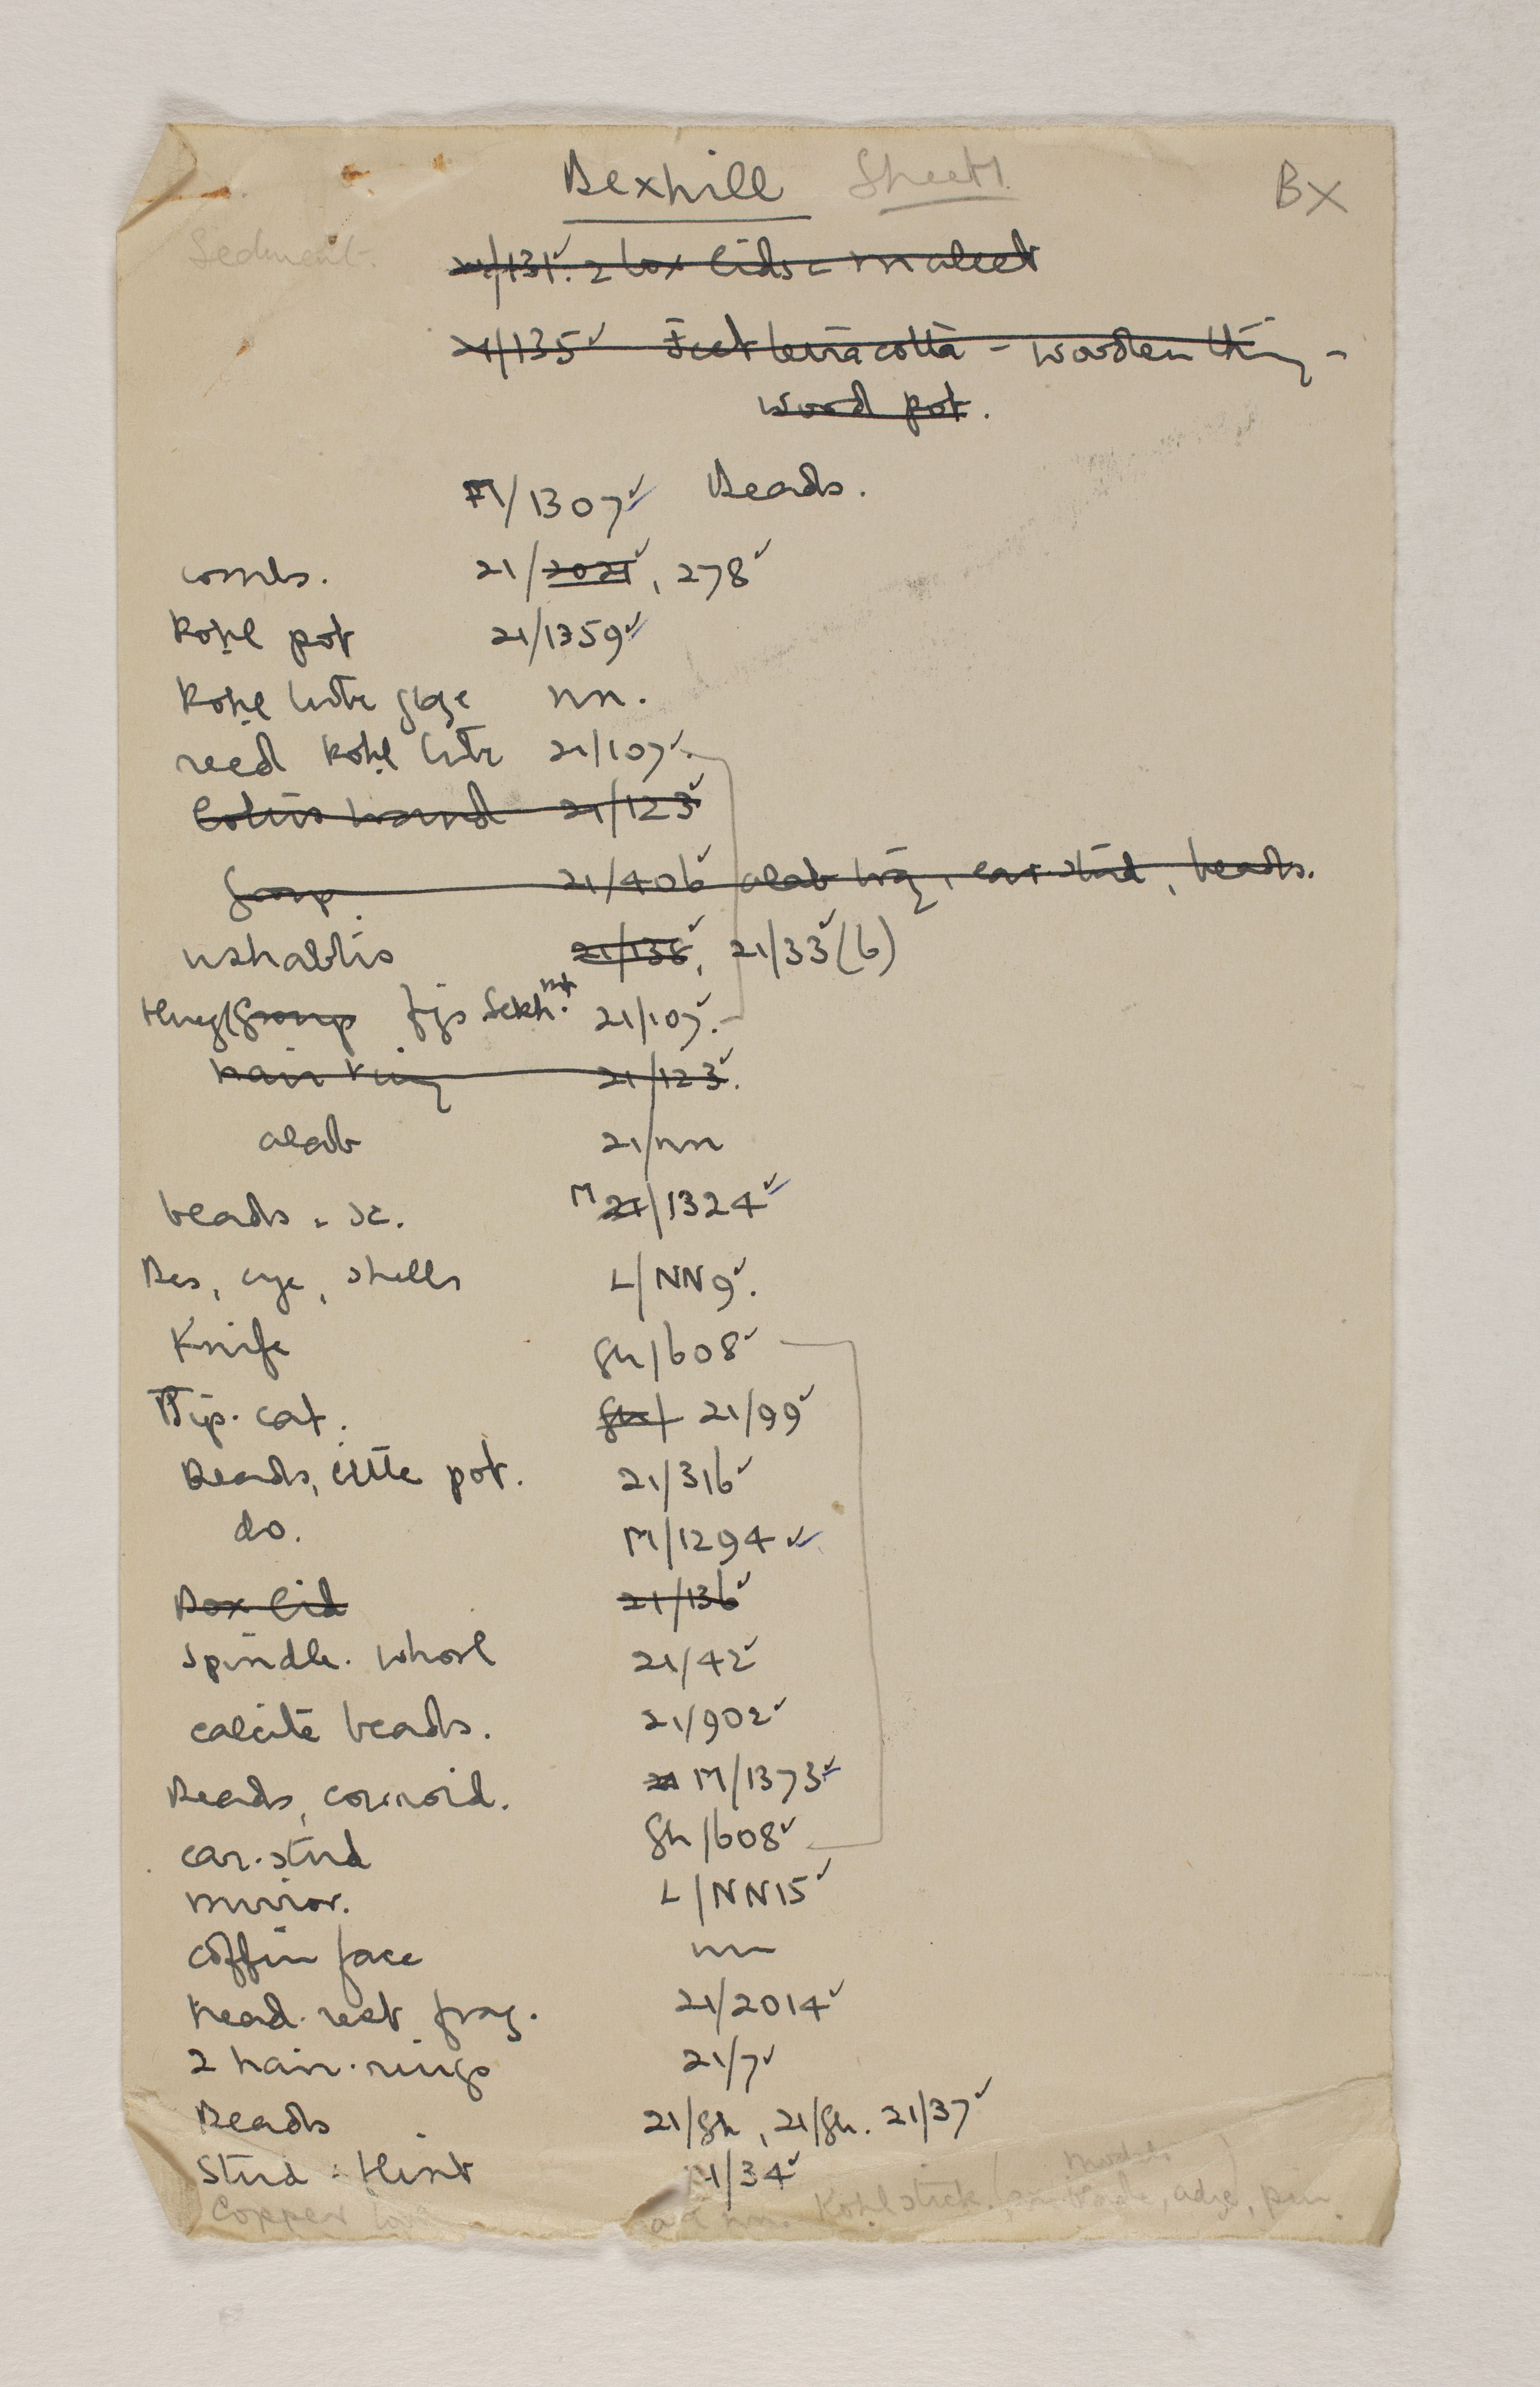 Bexhill Sheet 1. BX
Sediment.
21/131. 2 box lids - mallet
21/135 Feet terracotta - wooden thing -
wood pot.
M/1307 Beads.
combs. 21/2021, 278
Kohl pot 21/1359
Kohl tube glaze nn.
reed Kohl tube 21/107.
Lotus wand 21/123
Group. 21/406 alab. frag, ear-stud, beads.
ushabtis 21/138, 21/33(6)
Group figs Sekh. 21/107.
hair ring 21/123.
alab 21/nn
beads - sc. M 21/1324
Bes, eye, shells L/NN9.
Knife Gh/608
Tip-cat. Gh/ 21/99
Beads, little pot. 21/316
do. M/1294
Box lid 21/136
Spindle-whorl 21/42
calcite beads. 21/902
Beads, corinoid. 21 M/1373
ear-stud Gh/608
mirror. L/NN15
coffin face nn
head-rest frag. 21/2014
2 hair-rings 21/7
Beads 21/Gh, 21/Gh. 21/37
Stud - flint 21/34
models
Copper nn. Kohl stick, adze, pin.